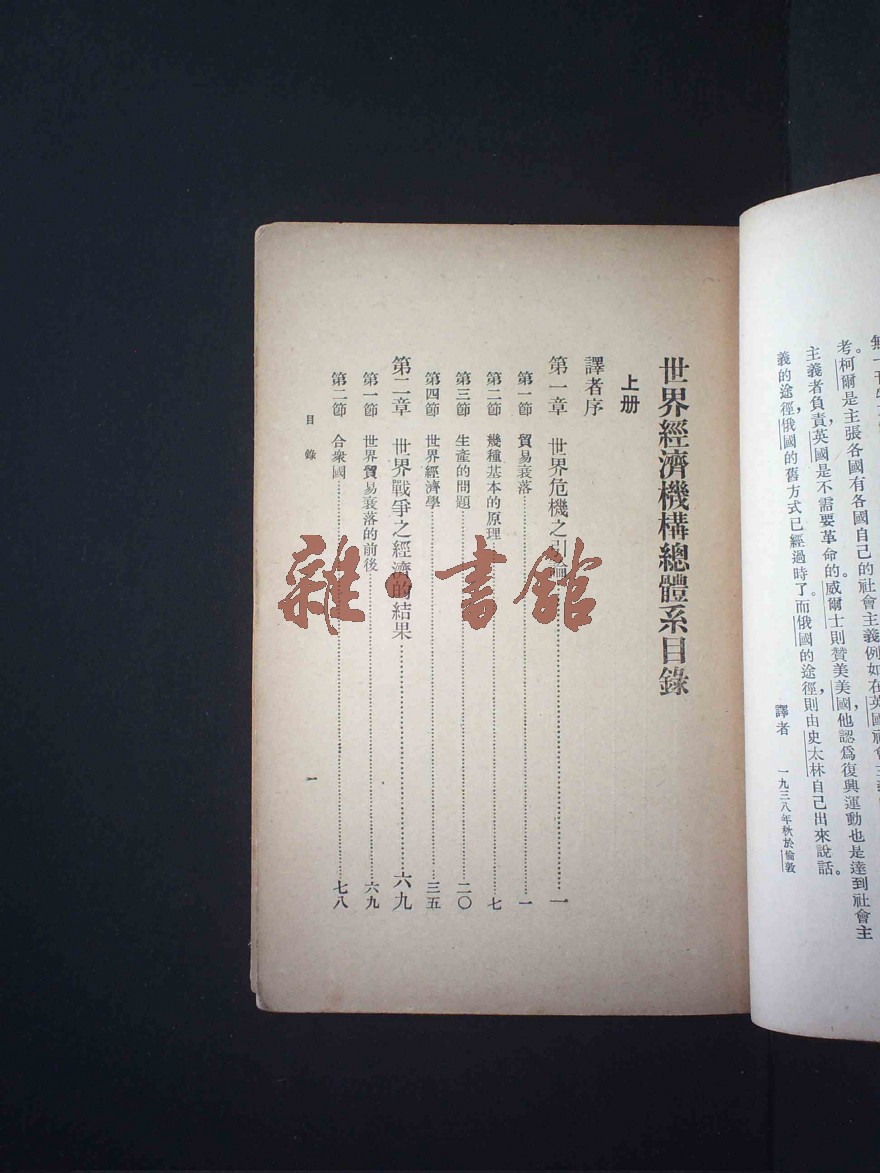 考。柯爾是主張各國有各國自己的社會主義例如在英國
主義者負責，英國是不需要革命的。威爾士則贊美美國，他認爲復興運動也是達到社會主
義的途徑，俄國的舊方式已經過時了。而俄國的途徑，則由史太林自己出來說話。
譯者 一九三八年秋於倫敦
世界經濟機構總體系目錄
上册
譯者序
第一章 世界危機之引論……一
第一節 貿易衰落……一
第二節 幾種基本的原理……七
第三節 生產的問題……二〇
第四節 世界經濟學……三五
第二章 世界戰爭之經濟的結果……六九
第一節 世界貿易衰落的前後……六九
第二節 合衆國……七八
目錄 一
雜·書館